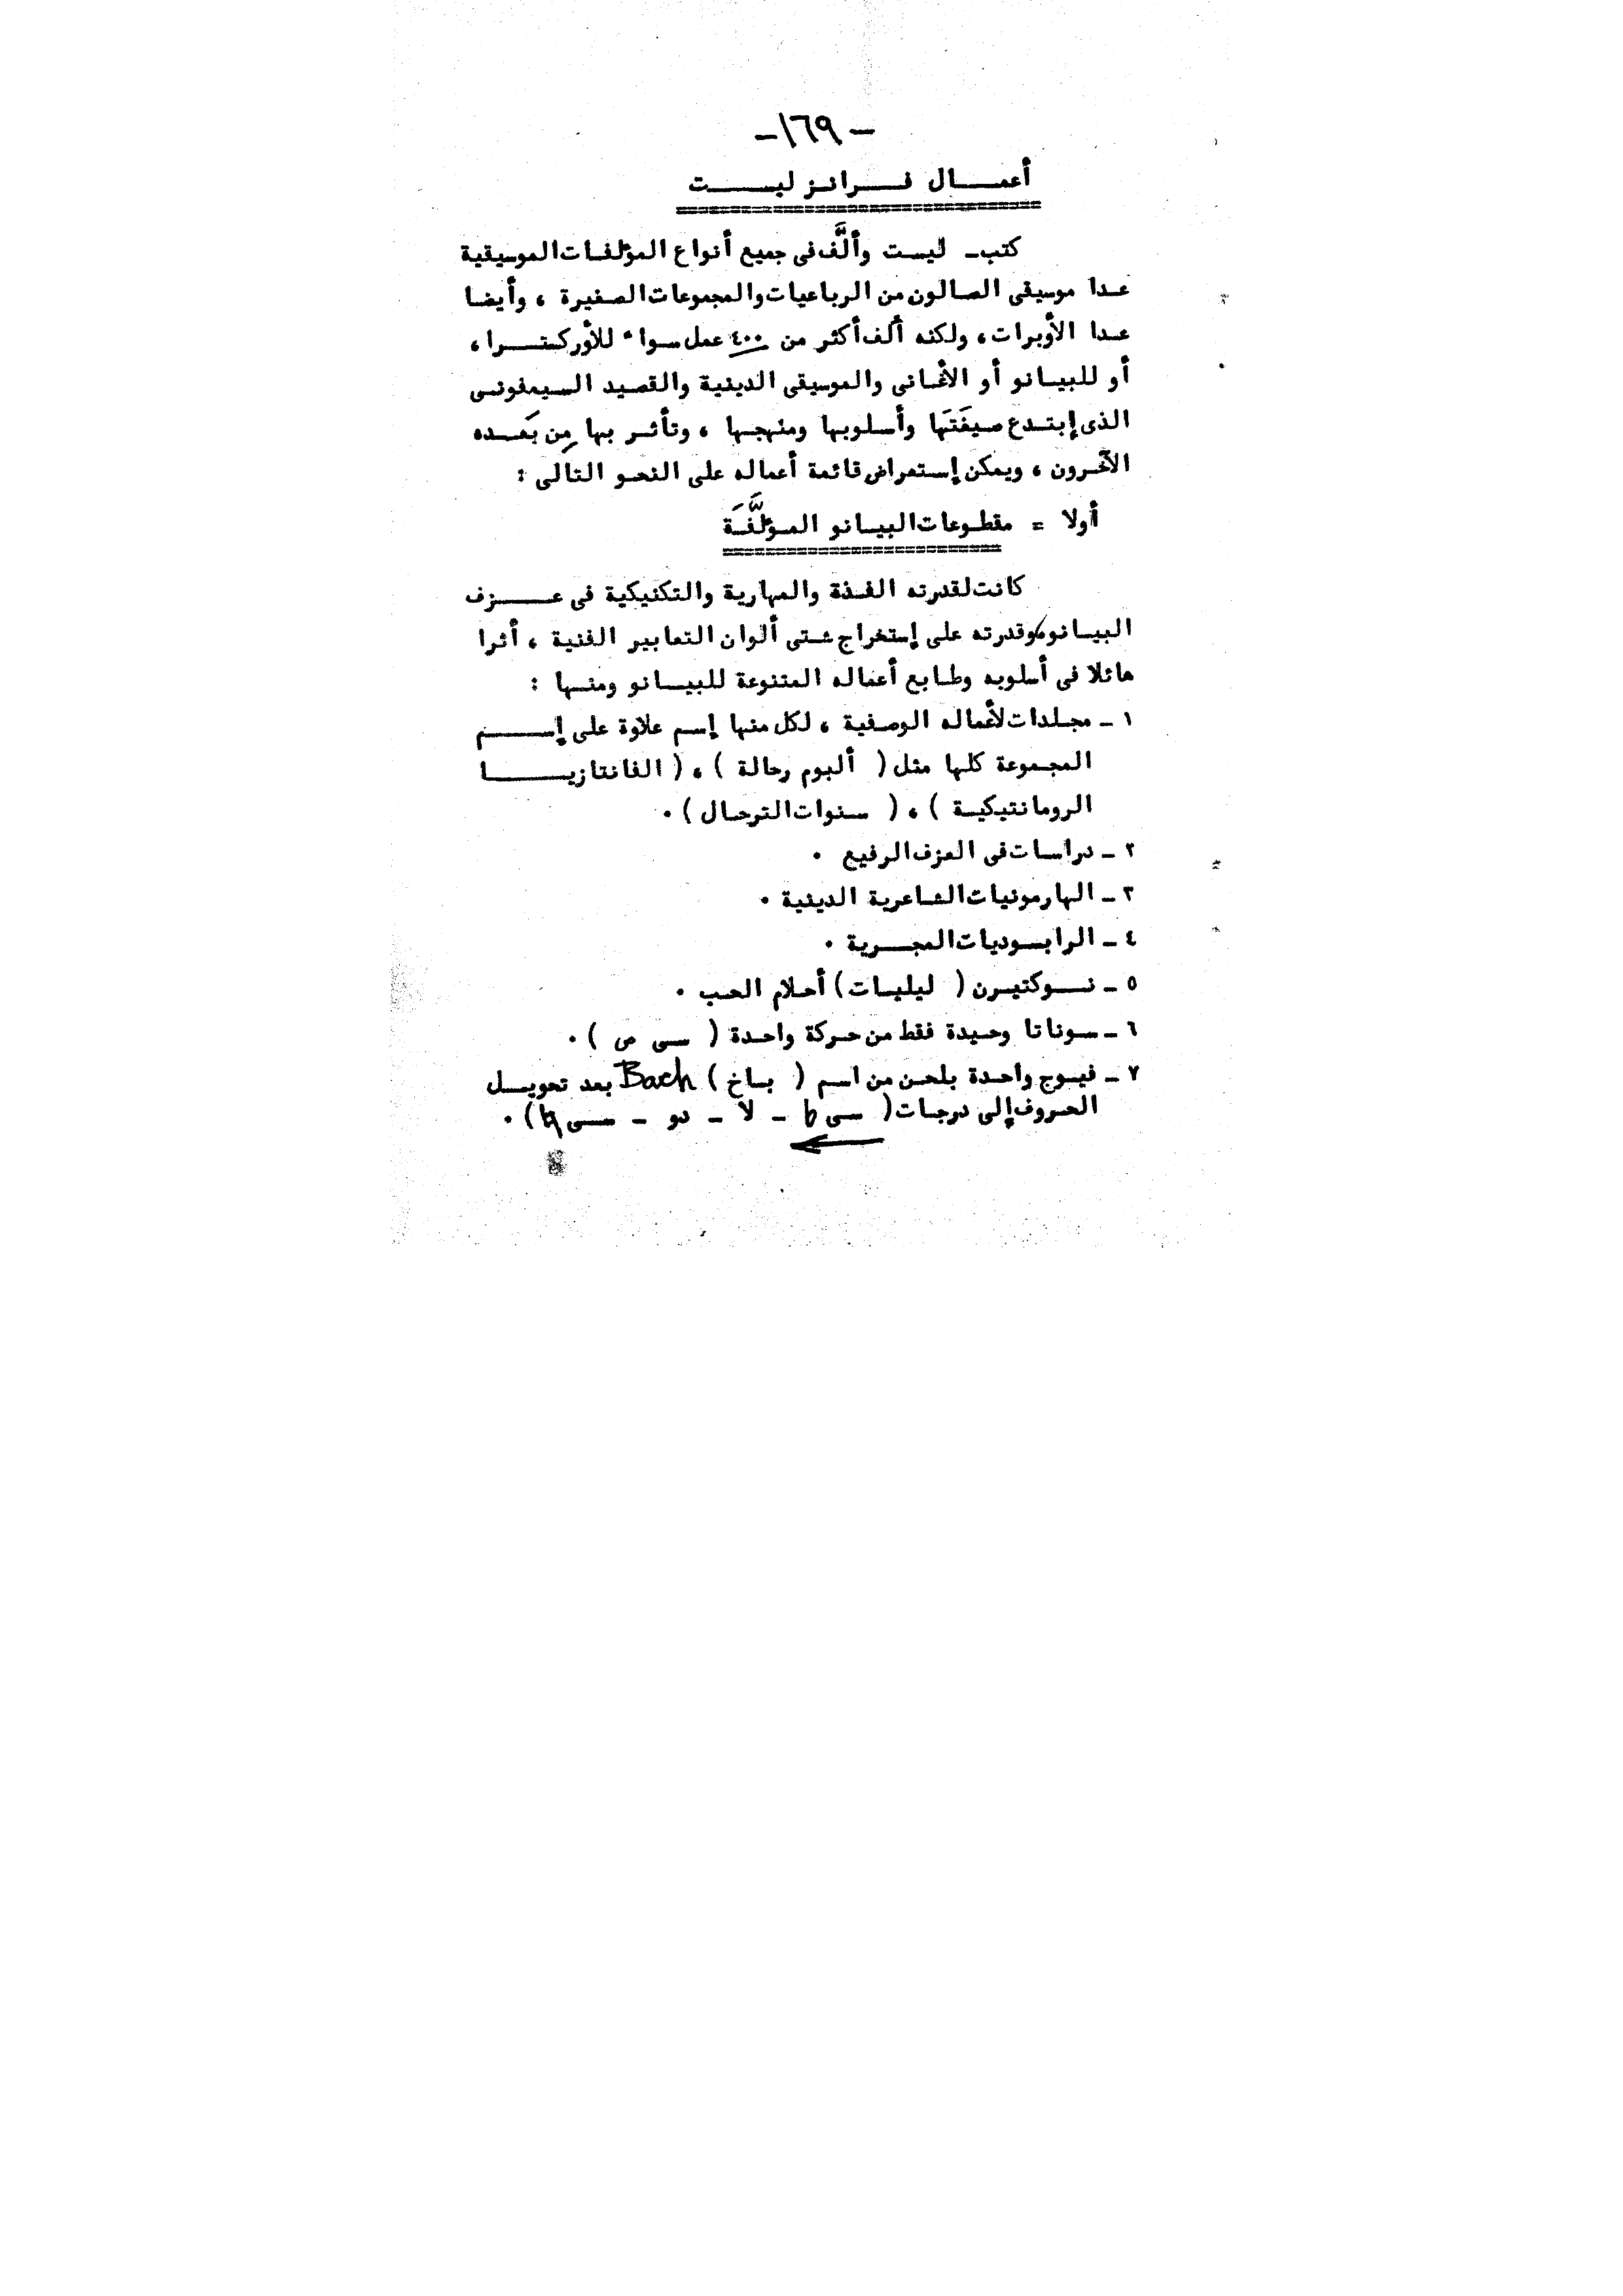 - ١٦٩ -
أعمال فرانز ليست
كتب - ليست وألَّف في جميع أنواع المؤلفات الموسيقية
عدا موسيقى الصالون من الرباعيات والمجموعات الصغيرة ، وأيضا
عدا الأوبرات ، ولكنه ألف أكثر من ٤٠٠ عمل سواء للأوركسترا ،
أو للبيانو أو الأغاني والموسيقى الدينية والقصيد السيمفوني
الذى إبتدع صيغَتَها وأسلوبها ومنهجها ، وتأثر بها مِن بَعده
الآخرون ، ويمكن إستعراض قائمة أعماله على النحو التالى :
أولا = مقطوعات البيانو المؤلَّفَة
كانت لقدرته الفذة والمهارية والتكنيكية فى عزف
البيانو وقدرته على إستخراج شتى ألوان التعابير الفنية ، أثرا
هائلا فى أسلوبه وطابع أعماله المتنوعة للبيانو ومنها :
١ - مجلدات لأعماله الوصفية ، لكل منها إسم علاوة على إسم
المجموعة كلها مثل ( ألبوم رحالة ) ، ( الفانتازيا
الرومانتيكية ) ، ( سنوات الترحال ) .
٢ - دراسات فى العزف الرفيع .
٣ - الهارمونيات الشاعرية الدينية .
٤ - الرابسوديات المجرية .
٥ - نوكتيرن ( ليليات ) أحلام الحب .
٦ - سوناتا وحيدة فقط من حركة واحدة ( سى ص ) .
٧ - فيوج واحدة بلحن من اسم ( باخ ) Bach بعد تحويل
الحروف إلى درجات ( سى ♭ - لا - دو - سى ♮ ) .